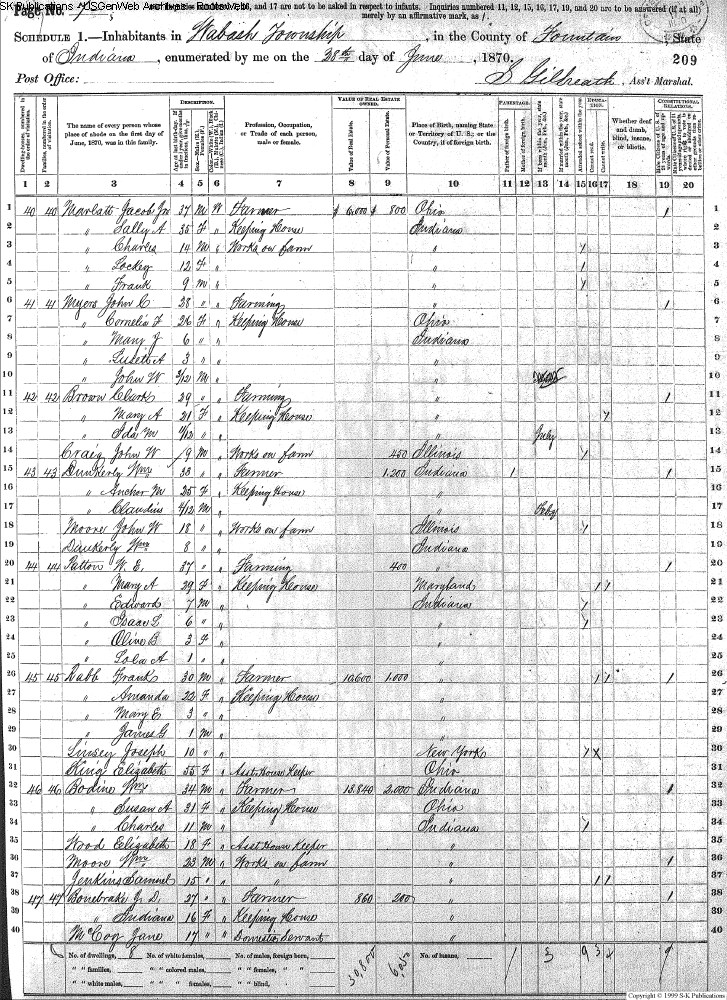 SK Publications - USGenWeb Archives - Rootsweb
Page No. 7
Inquiries numbered 7, 16, and 17 are not to be asked in respect to infants. Inquiries numbered 11, 12, 15, 16, 17, 19, and 20 are to be answered (if at all)
merely by an affirmative mark, as /.
SCHEDULE 1.—Inhabitants in Wabash Township, in the County of Fountain, State
of Indiana, enumerated by me on the 28th day of June, 1870. 209
Post Office: S Gilbreath, Ass't Marshal.
DESCRIPTION. VALUE OF REAL ESTATE OWNED. PARENTAGE. EDUCATION. CONSTITUTIONAL RELATIONS.
The name of every person whose place of abode on the first day of June, 1870, was in this family.
Profession, Occupation, or Trade of each person, male or female.
Value of Real Estate. Value of Personal Estate.
Place of Birth, naming State or Territory of U. S.; or the Country, if of foreign birth.
Father of foreign birth. Mother of foreign birth.
Attended school within the year. Cannot read. Cannot write.
Whether deaf and dumb, blind, insane, or idiotic.
1 2 3 4 5 6 7 8 9 10 11 12 13 14 15 16 17 18 19 20
1 40 40 Marlatt Jacob Jr 37 M W Farmer $ 6,000 $ 800 Ohio / 1
2 " Sally A 35 F " Keeping House Indiana 2
3 " Charles 14 M " Works on farm " / 3
4 " Lockey 12 F " " / 4
5 " Frank 9 M " " / 5
6 41 41 Myers John C 28 " " Farming " / 6
7 " Cornelia F 26 F " Keeping House Ohio 7
8 " Mary J 6 " " Indiana 8
9 " A 3 " " " 9
10 " John W 3/12 M " " 10
11 42 42 Brown Clark 29 " " Farming " / 11
12 " Mary A 21 F " Keeping House " / 12
13 " Ida M 11/12 " " " July 13
14 Craig John W 19 M " Works on farm 450 Illinois / 14
15 43 43 Dunkerly Wm 33 " " Farmer 1,200 Indiana / / 15
16 " Anchor M 25 F " Keeping House " 16
17 " Claudius 4/12 M " " Feby 17
18 Moore John W 18 " " Works on farm Illinois / 18
19 Dunkerly Wm 8 " " Indiana 19
20 44 44 Patton W. E. 37 " " Farming 400 " / 20
21 " Mary A 29 F " Keeping House Maryland / / 21
22 " Edward 7 M " Indiana / 22
23 " Isaac S 6 " " " / 23
24 " Olive B 3 F " " 24
25 " Lola A 1 " " " 25
26 45 45 Rabb Frank 30 M " Farmer 10,600 1,000 " / / / 26
27 " Amanda 22 F " Keeping House " 27
28 " Mary E 3 " " " 28
29 " James G 1 M " " 29
30 Linsey Joseph 10 " " New York / X 30
31 King Elizabeth 55 F " Asst House Keeper Ohio 31
32 46 46 Bodine Wm 34 M " Farmer 13,840 2,000 Indiana / 32
33 " Susan A 31 F " Keeping House Ohio 33
34 " Charles 11 M " Indiana / 34
35 Wood Elizabeth 18 F " Asst House Keeper " 35
36 Moore Wm 23 M " Works on farm " / 36
37 Jenkins Samuel 15 " " " " / / 37
38 47 47 Bonebrake J. D. 27 " " Farmer 860 200 " / 38
39 " Indiana 16 F " Keeping House " 39
40 McCoy Jane 17 " " Domestic Servant " 40
No. of dwellings, 8 No. of white females, No. of males, foreign born, 30,800 6,050 No. of insane, / 3 9 3 9
" " families, " " colored males, " " females, " "
" " white males, " " " females, " " blind,
Copyright © 1999 S-K Publications